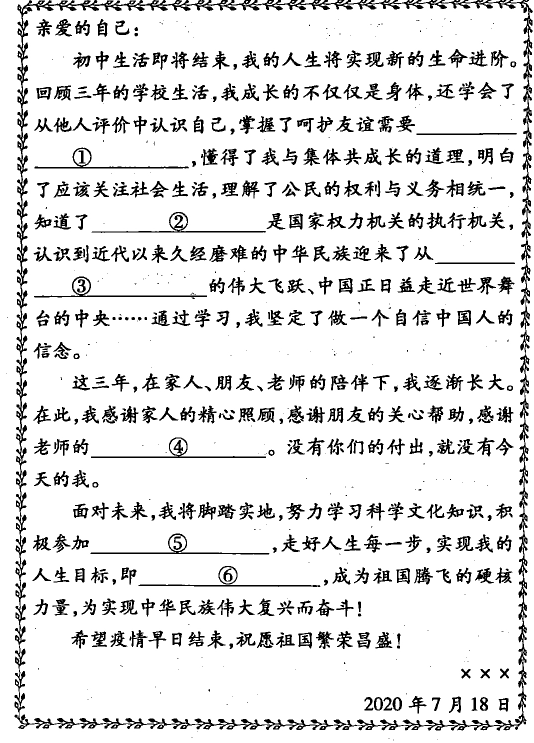 亲爱的自己:
初中生活即将结束,我的人生将实现新的生命进阶。
回顾三年的学校生活,我成长的不仅仅是身体,还学会了
从他人评价中认识自己,掌握了呵护友谊需要________
____①________,懂得了我与集体共成长的道理,明白
了应该关注社会生活,理解了公民的权利与义务相统一,
知道了______②______是国家权力机关的执行机关,
认识到近代以来久经磨难的中华民族迎来了从______
____③________的伟大飞跃、中国正日益走近世界舞
台的中央……通过学习,我坚定了做一个自信中国人的
信念。
这三年,在家人、朋友、老师的陪伴下,我逐渐长大。
在此,我感谢家人的精心照顾,感谢朋友的关心帮助,感谢
老师的______④______。没有你们的付出,就没有今
天的我。
面对未来,我将脚踏实地,努力学习科学文化知识,积
极参加______⑤______,走好人生每一步,实现我的
人生目标,即______⑥______,成为祖国腾飞的硬核
力量,为实现中华民族伟大复兴而奋斗!
希望疫情早日结束,祝愿祖国繁荣昌盛!
×××
2020年7月18日